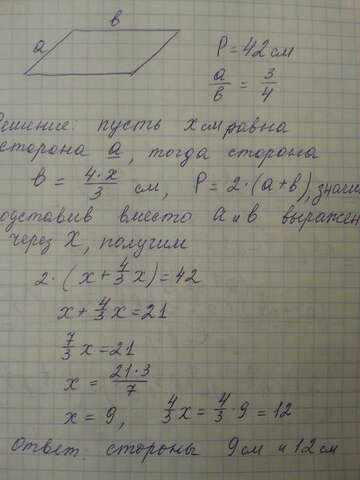 в
а
P = 42 см
а/в = 3/4
Решение: пусть x см равна
сторона а, тогда сторона
в = 4·x/3 см, P = 2·(а+в), значи
подставив вместо а и в выражен
через X, получим
2·(x + 4/3 x) = 42
x + 4/3 x = 21
7/3 x = 21
x = 21·3/7
x = 9, 4/3 x = 4/3 · 9 = 12
Ответ: стороны 9 см и 12 см